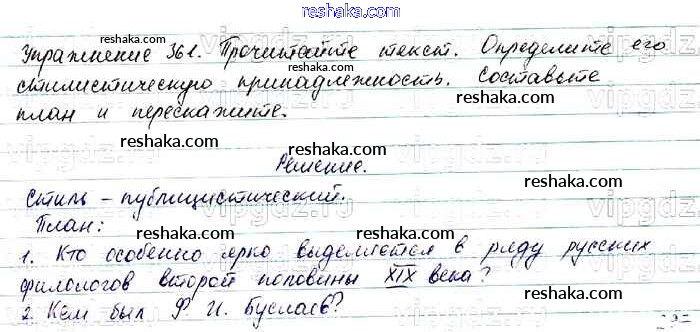 reshaka.com
Упражнение 361. Прочитайте текст. Определите его
reshaka.com
стилистическую принадлежность. Составьте
reshaka.com
план и перескажите.
reshaka.com reshaka.com
Решение.
reshaka.com
Стиль – публицистический.
План:
reshaka.com
1. Кто особенно ярко выделяется в ряду русских
филологов второй половины XIX века?
reshaka.com
2. Кем был Ф. И. Буслаев?
reshaka.com